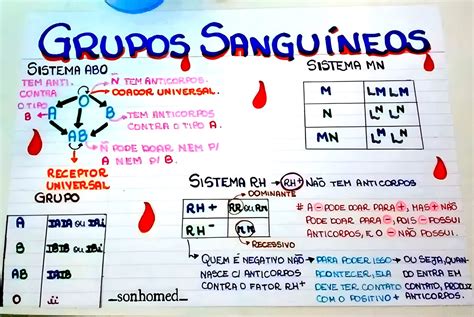 GRUPOS SANGUÍNEOS
SISTEMA ABO
TEM ANTI.
CONTRA
O TIPO
B
Ñ TEM ANTICORPOS.
DOADOR UNIVERSAL.
O
A
B
AB
TEM ANTICORPOS
CONTRA O TIPO A.
Ñ PODE DOAR NEM P/
A NEM P/ B.
RECEPTOR
UNIVERSAL
SISTEMA MN
M
LM LM
N
L^N L^N
MN
L^M L^N
GRUPO
A
IAIA OU IAi
B
IBIB OU IBi
AB
IAIB
O
ii
SISTEMA RH
RH+
NÃO TEM ANTICORPOS
DOMINANTE
RH+
RR OU Rr
RH-
RECESSIVO
# A - PODE DOAR PARA +, MAS + NÃO
PODE DOAR PARA -, POIS - POSSUI
ANTICORPOS, E O - NÃO POSSUI.
QUEM É NEGATIVO NÃO
NASCE C/ ANTICORPOS
CONTRA O FATOR RH+
PARA PODER ISSO
ACONTECER, ELA
DEVE TER CONTATO
COM O POSITIVO +
OU SEJA, QUANDO
ENTRA EM
CONTATO, PRODUZ
ANTICORPOS.
_sonhomed_